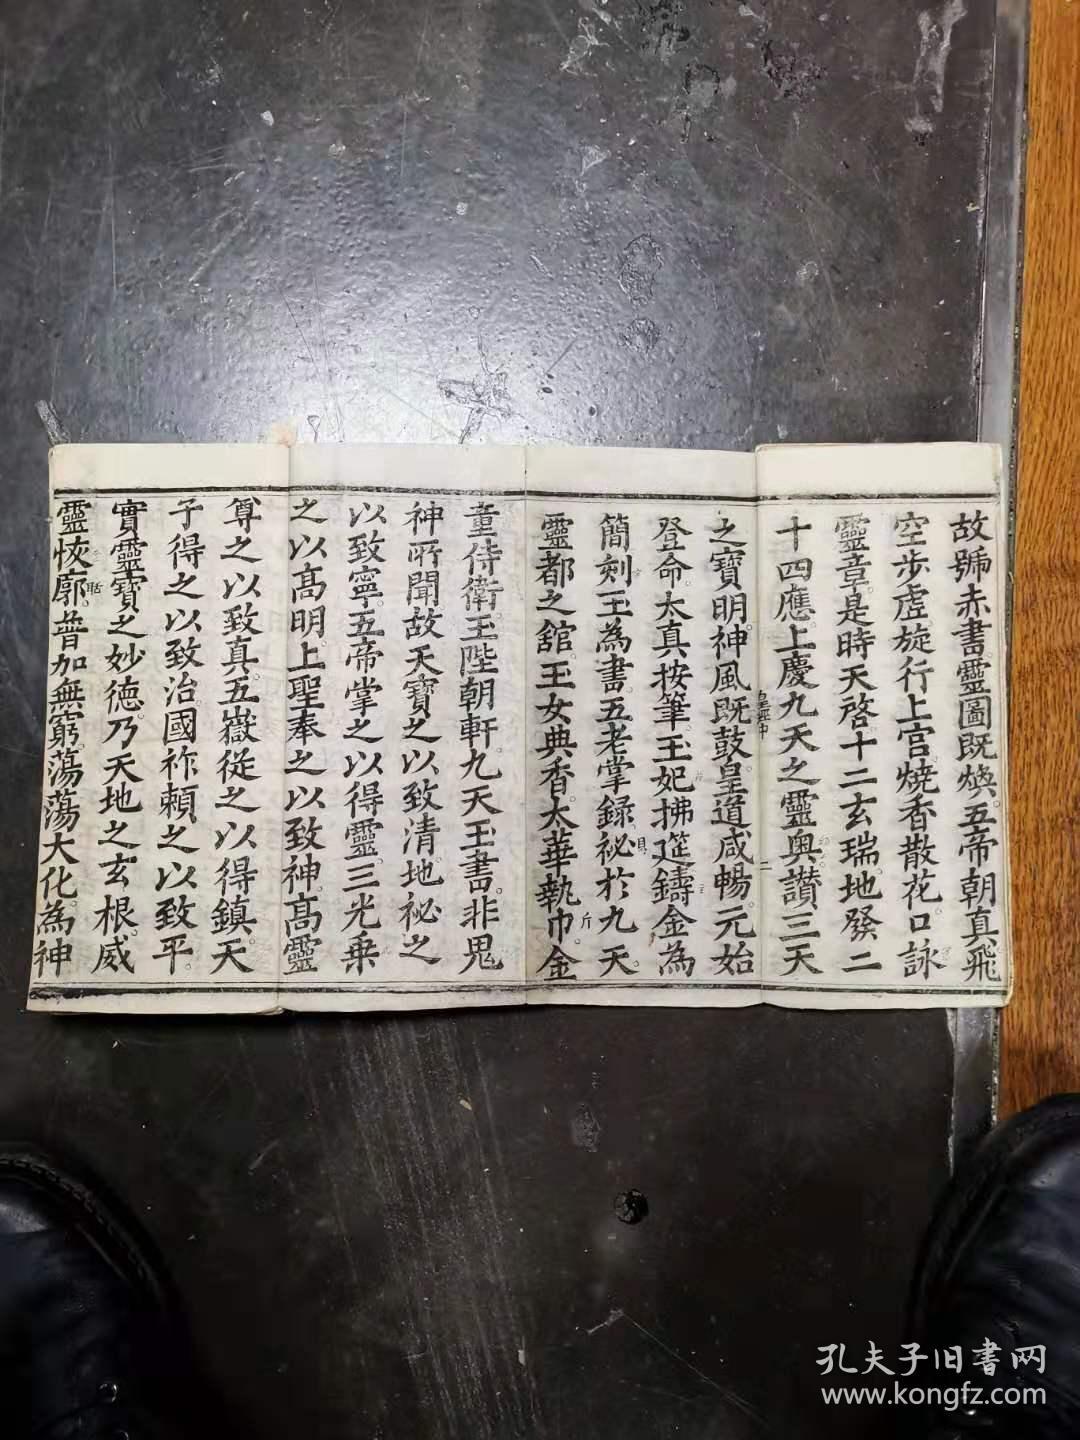 故號赤書靈圖既煥五帝朝真飛
空步虛旋行上宫燒香散花口詠
靈章是時天啓十二玄瑞地發二
十四應上慶九天之靈奥讃三天
之寶明神風既鼓皇道咸暢元始
登命太真按筆玉妃拂筵鑄金為
簡刻玉為書五老掌録祕於九天
靈都之舘玉女典香太華執巾金
童侍衛玉陛朝軒九天玉書非鬼
神所聞故天寶之以致清地祕之
以致寧五帝掌之以得靈三光乗
之以髙明上聖奉之以致神髙靈
尊之以致真五嶽從之以得鎮天
子得之以致治國祚頼之以致平
實靈寶之妙徳乃天地之玄根威
靈恢廓普加無窮蕩蕩大化為神
孔夫子旧書网
www.kongfz.com